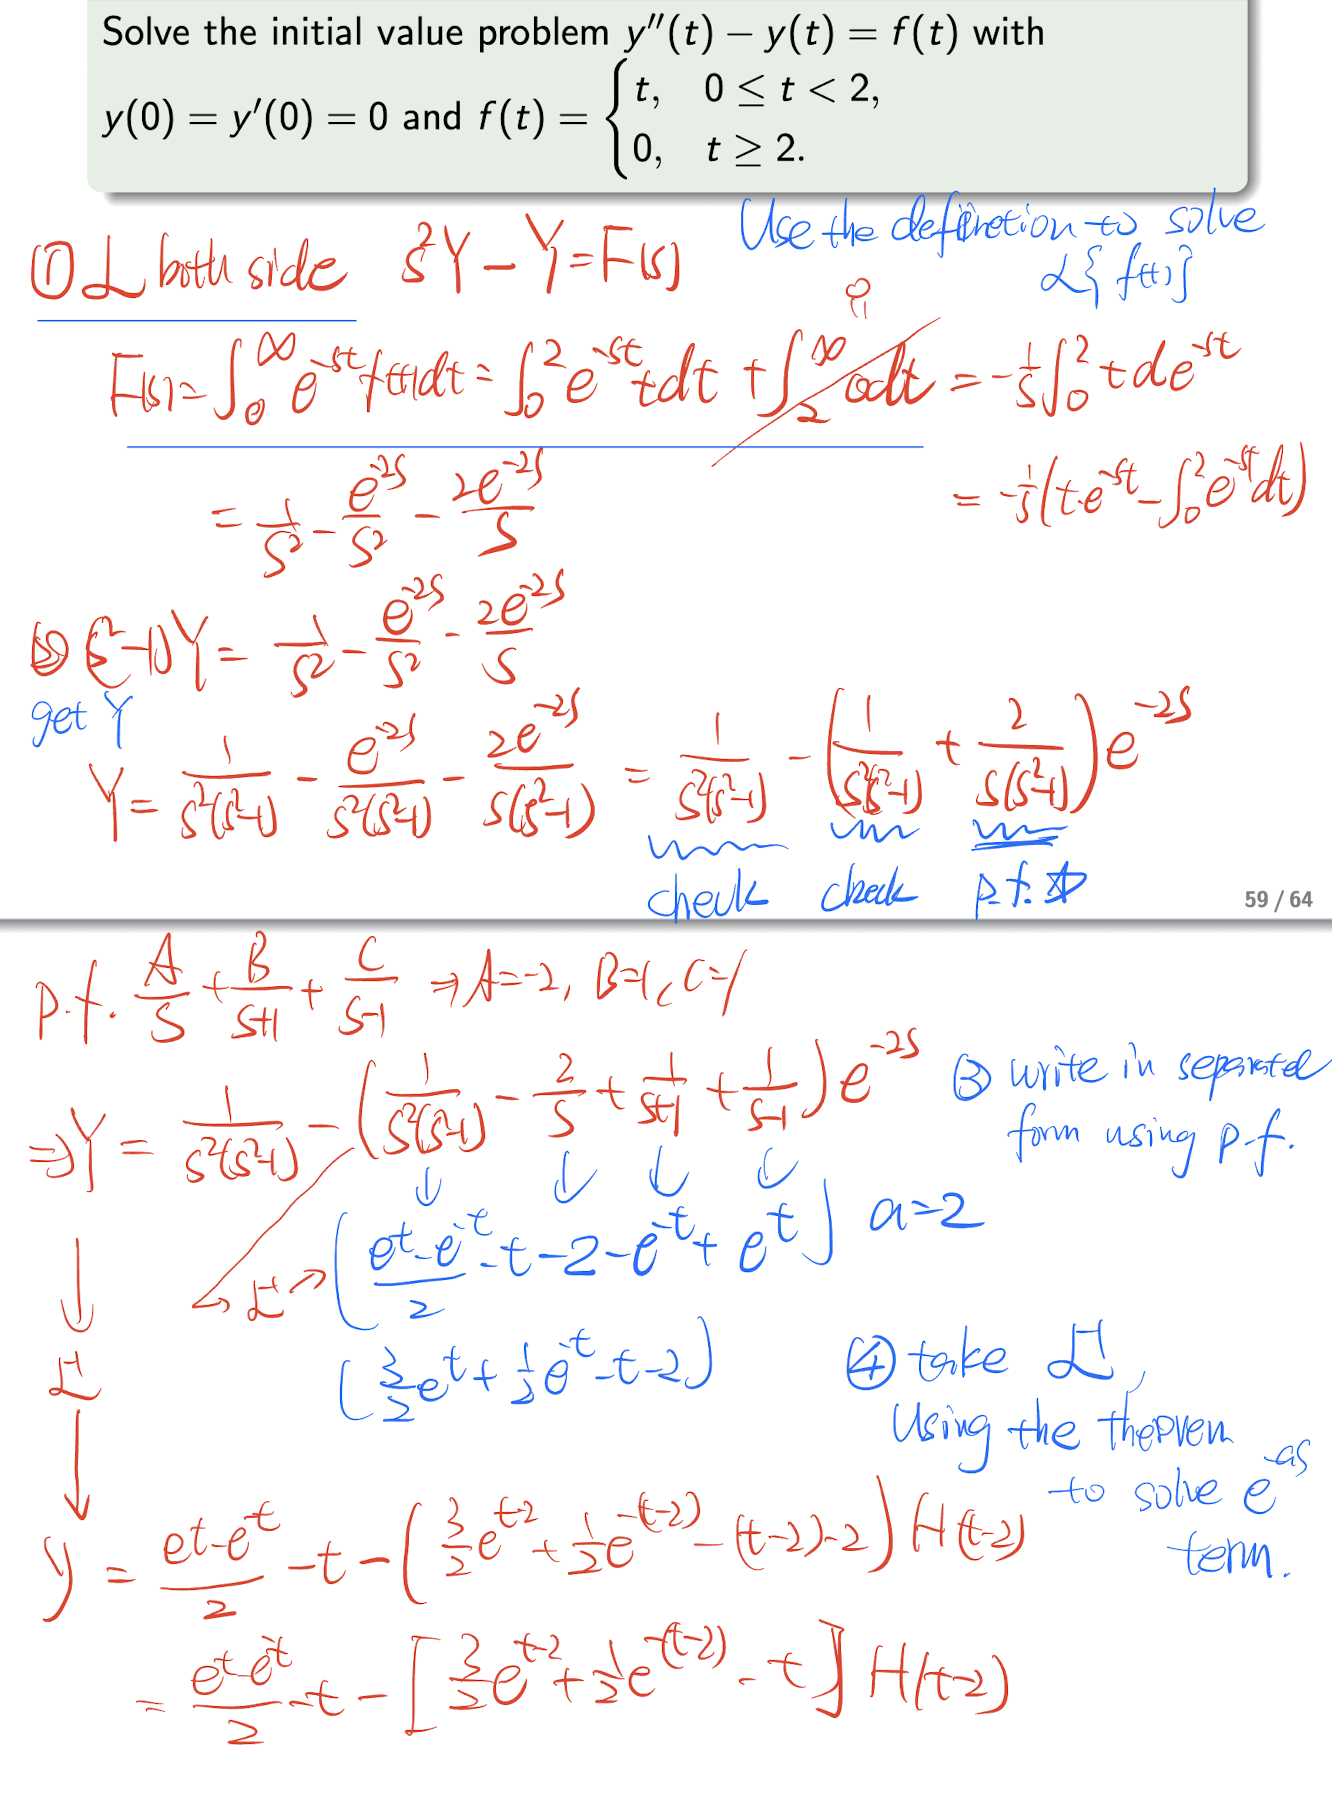 Solve the initial value problem y″(t) − y(t) = f(t) with
y(0) = y′(0) = 0 and f(t) = { t, 0 ≤ t < 2,
0, t ≥ 2.
Use the definetion to solve
ℒ{f(t)}
① ℒ both side s²Y − Y = F(s)
F(s) = ∫₀^∞ e^{-st} f(t)dt = ∫₀² e^{-st} t dt + ∫₂^∞ 0dt = -1/s ∫₀² t de^{-st}
= -1/s (t·e^{-st} − ∫₀² e^{-st} dt)
= 1/s² − e^{-2s}/s² − 2e^{-2s}/s
② (s²−1)Y = 1/s² − e^{-2s}/s² − 2e^{-2s}/s
get Y
Y = 1/(s²(s²−1)) − e^{-2s}/(s²(s²−1)) − 2e^{-2s}/(s(s²−1)) = 1/(s²(s²−1)) − (1/(s²(s²−1)) + 2/(s(s²−1))) e^{-2s}
check check p.f.
59 / 64
p.f. A/s + B/(s+1) + C/(s−1) ⇒ A=−2, B=1, C=1
⇒ Y = 1/(s²(s²−1)) − (1/(s²(s²−1)) − 2/s + 1/(s+1) + 1/(s−1)) e^{-2s}
③ write in separated
form using p.f.
ℒ⁻¹ ( (e^t − e^{-t})/2 − t − 2 − e^{-t} + e^t ) a=2
(3/2 e^t + 1/2 e^{-t} − t − 2)
ℒ⁻¹
④ take ℒ⁻¹,
Using the theorem
to solve e^{-as}
term.
y = (e^t − e^{-t})/2 − t − (3/2 e^{t-2} + 1/2 e^{-(t-2)} − (t−2) − 2) H(t−2)
= (e^t − e^{-t})/2 − t − [3/2 e^{t-2} + 1/2 e^{-(t-2)} − t] H(t−2)